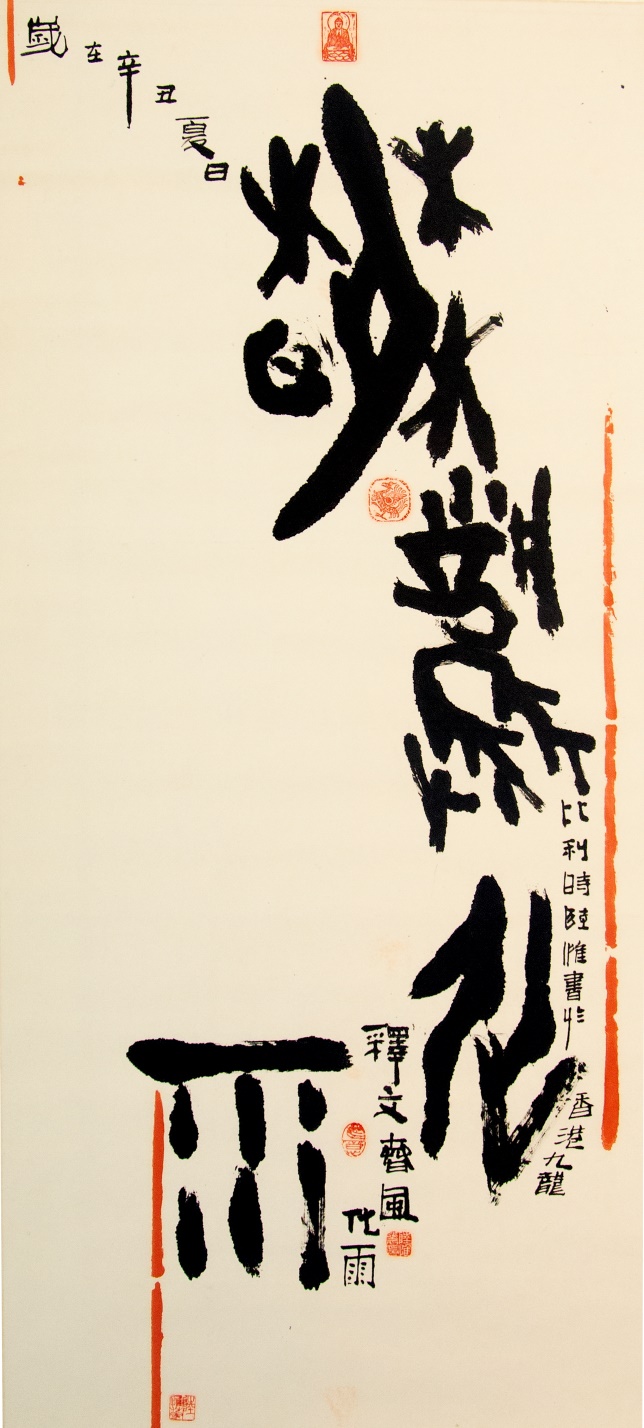 春風化雨
歲在辛丑夏日
比利時陸惟書於
香港九龍
釋文春風
化雨